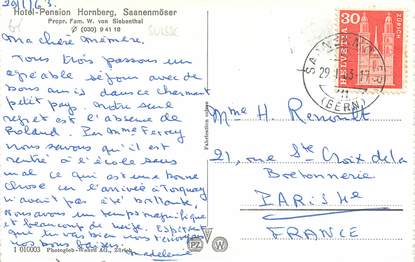 29/1/63.
Hotel-Pension Hornberg, Saanenmöser
Propr. Fam. W. von Siebenthal
(030) 9 41 18
SUISSE
Ma chère Mémère,
Nous trois passons un
agréable séjour avec de
bons amis dans ce charmant
petit pays. Notre seul
regret est l'absence de
Roland. Par Mme
nous savons qu'il est
rentré à l'école sans
mal ce qui est une bonne
chose car l'arrivée à Torquay
n'avait pas été brillante.
Nous avons un temps magnifique
et beaucoup de neige. Espérons
que tu vas bien nous t'envoyons
nos bons baisers.
Madeleine
I 010003 Photogleb-Wehrli AG., Zürich
PZ W
HELVETIA 30
ZÜRICH
SAANENMÖSER
(BERN)
Mme H. Renoult
21, rue Ste Croix de la
Bretonnerie
PARIS 4e
FRANCE